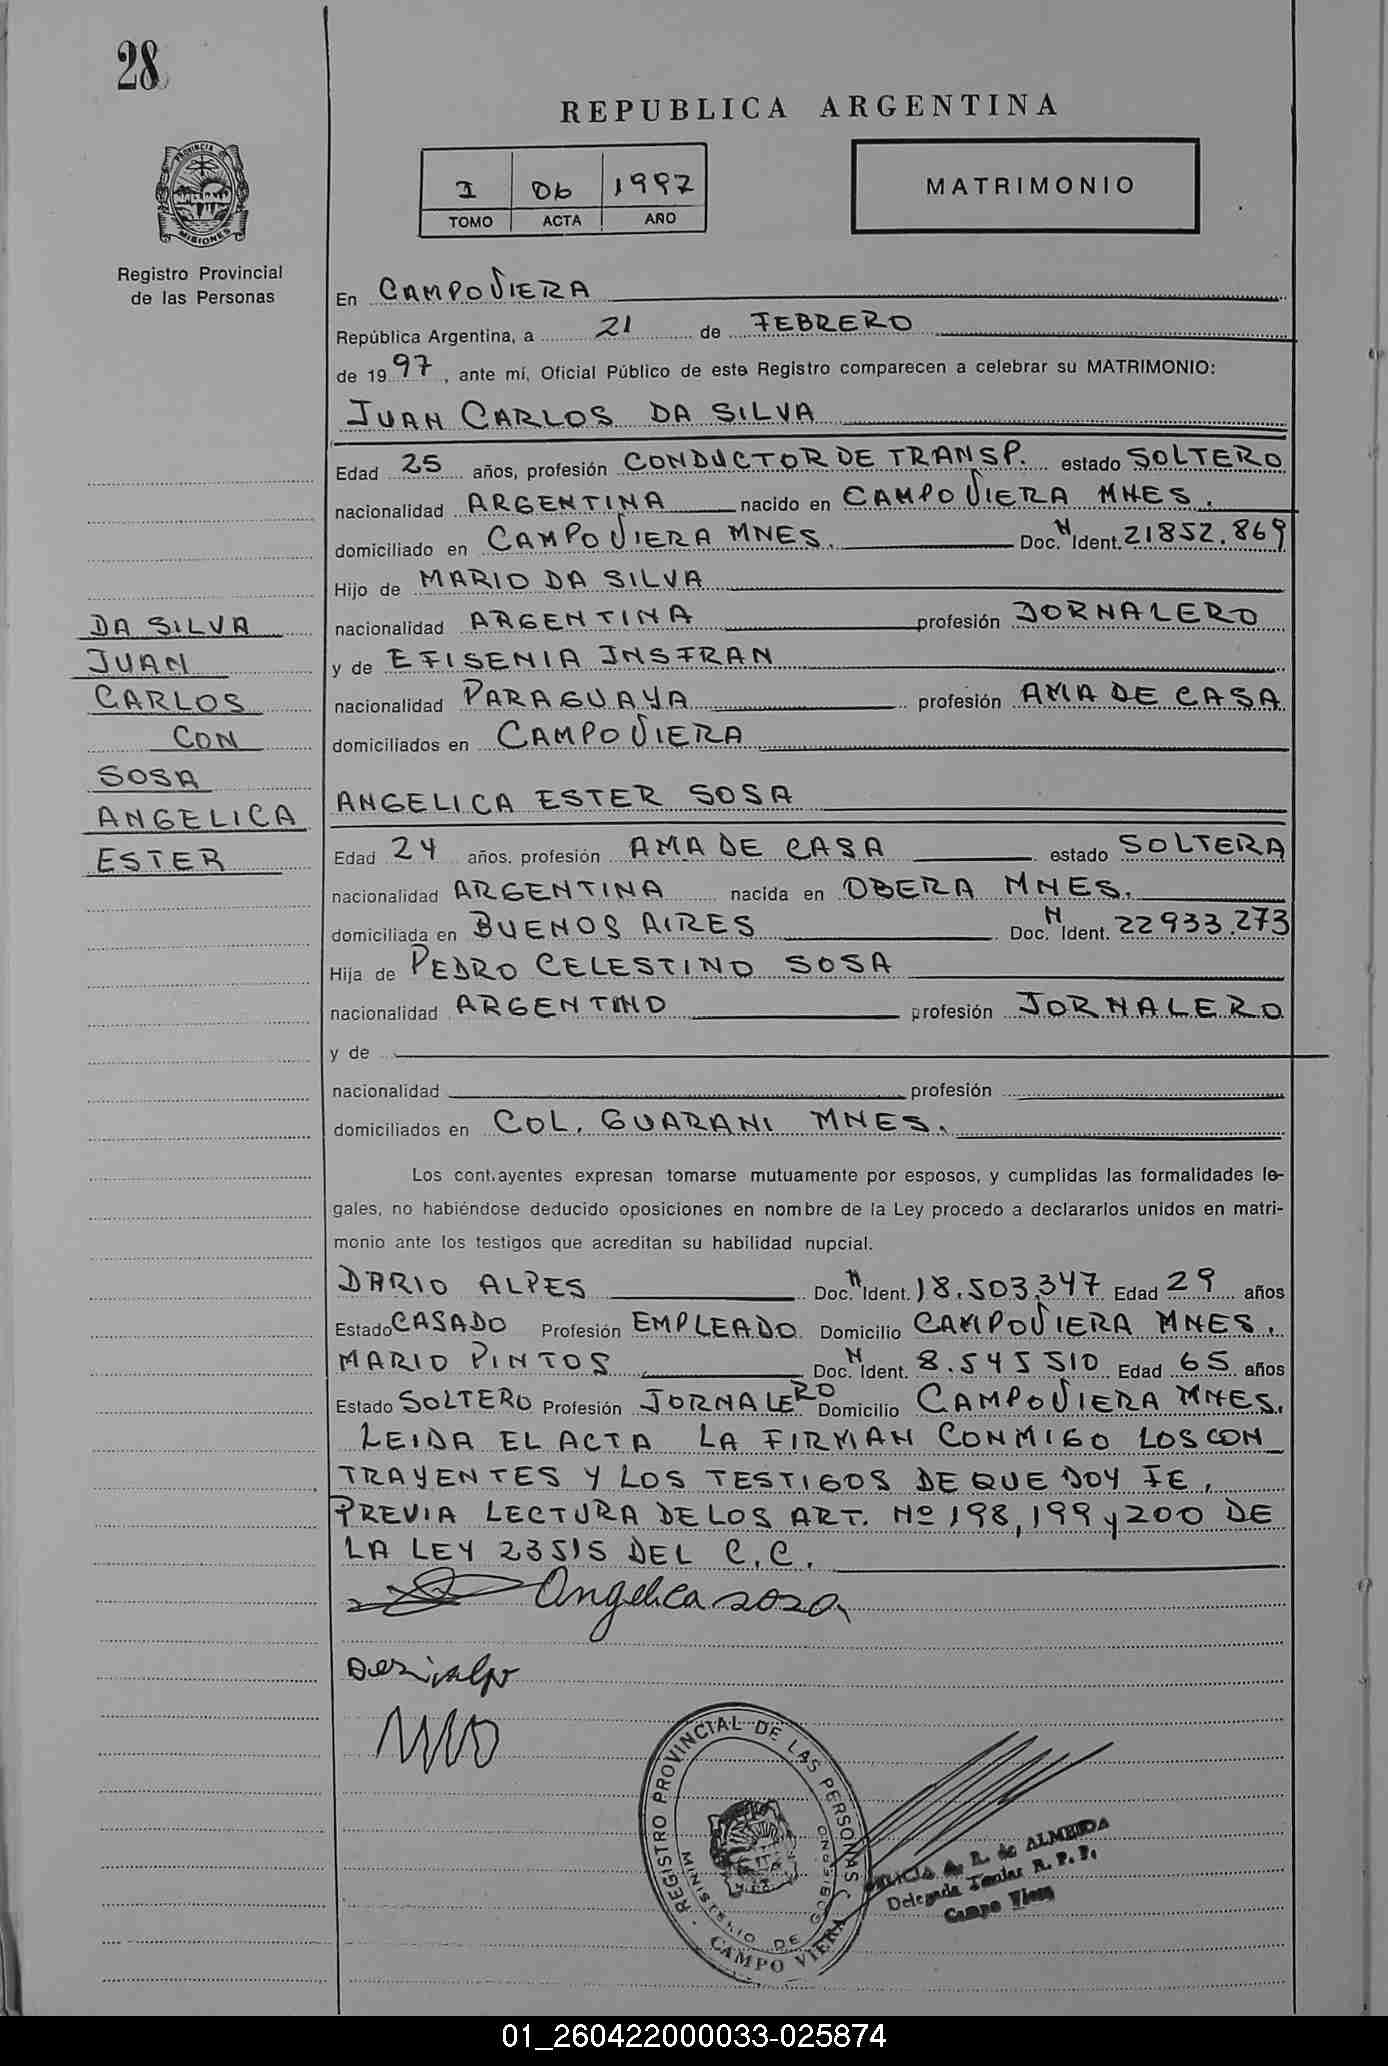 28
PROVINCIA
MISIONES
Registro Provincial
de las Personas
REPUBLICA ARGENTINA
I 06 1997
TOMO ACTA AÑO
MATRIMONIO
En CAMPO VIERA
República Argentina, a 21 de FEBRERO
de 1997, ante mí, Oficial Público de este Registro comparecen a celebrar su MATRIMONIO:
JUAN CARLOS DA SILVA
Edad 25 años, profesión CONDUCTOR DE TRANSP. estado SOLTERO
nacionalidad ARGENTINA nacido en CAMPO VIERA MNES.
domiciliado en CAMPO VIERA MNES. Doc. N Ident. 21852.869
Hijo de MARIO DA SILVA
nacionalidad ARGENTINA profesión JORNALERO
y de EFISENIA INSFRAN
nacionalidad PARAGUAYA profesión AMA DE CASA
domiciliados en CAMPO VIERA
DA SILVA
JUAN
CARLOS
CON
SOSA
ANGELICA
ESTER
ANGELICA ESTER SOSA
Edad 24 años. profesión AMA DE CASA estado SOLTERA
nacionalidad ARGENTINA nacida en OBERA MNES.
domiciliada en BUENOS AIRES Doc. N Ident. 22933.273
Hija de PEDRO CELESTINO SOSA
nacionalidad ARGENTINO profesión JORNALERO
y de
nacionalidad profesión
domiciliados en COL. GUARANI MNES.
Los cont.ayentes expresan tomarse mutuamente por esposos, y cumplidas las formalidades le-
gales, no habiéndose deducido oposiciones en nombre de la Ley procedo a declararlos unidos en matri-
monio ante los testigos que acreditan su habilidad nupcial.
DARIO ALPES Doc. N Ident. 18.503.347 Edad 29 años
Estado CASADO Profesión EMPLEADO Domicilio CAMPO VIERA MNES.
MARIO PINTOS Doc. N Ident. 8.545510 Edad 65 años
Estado SOLTERO Profesión JORNALERO Domicilio CAMPO VIERA MNES.
LEIDA EL ACTA LA FIRMAN CONMIGO LOS CON
TRAYENTES Y LOS TESTIGOS DE QUE DOY FE,
PREVIA LECTURA DE LOS ART. Nº 198, 199 y 200 DE
LA LEY 23515 DEL C.C.
Angelica sosa
REGISTRO PROVINCIAL DE LAS PERSONAS
MINISTERIO DE GOBIERNO
CAMPO VIERA
A. R. de ALMEIDA
Delegada Titular R. P. P.
Campo Viera
01_260422000033-025874